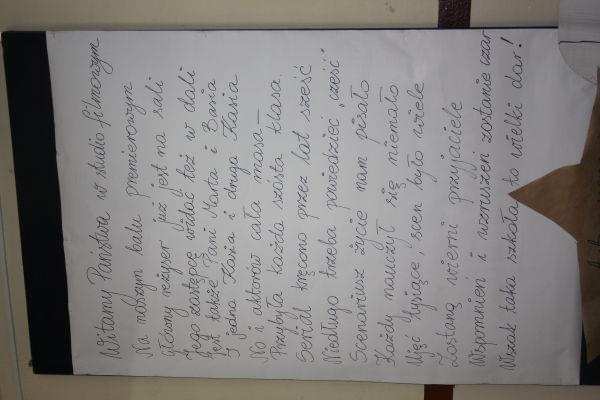 Witamy Państwa w studio filmowym
Na naszym balu premierowym
Główny reżyser już jest na sali
Jego zastępcę widać też w dali
Jest także Pani Marta i Basia
I jedna Kasia i druga Kasia
No i aktorów cała masa –
Przybyła każda szósta klasa.
Serial kręcono przez lat sześć
Niedługo trzeba powiedzieć „cześć"
Scenariusz życie nam pisało
Każdy nauczył się niemało
Ujęć tysiące, scen było wiele
Zostaną wierni przyjaciele
Wspomnień i wzruszeń zostanie czar
Wszak taka szkoła to wielki dar!